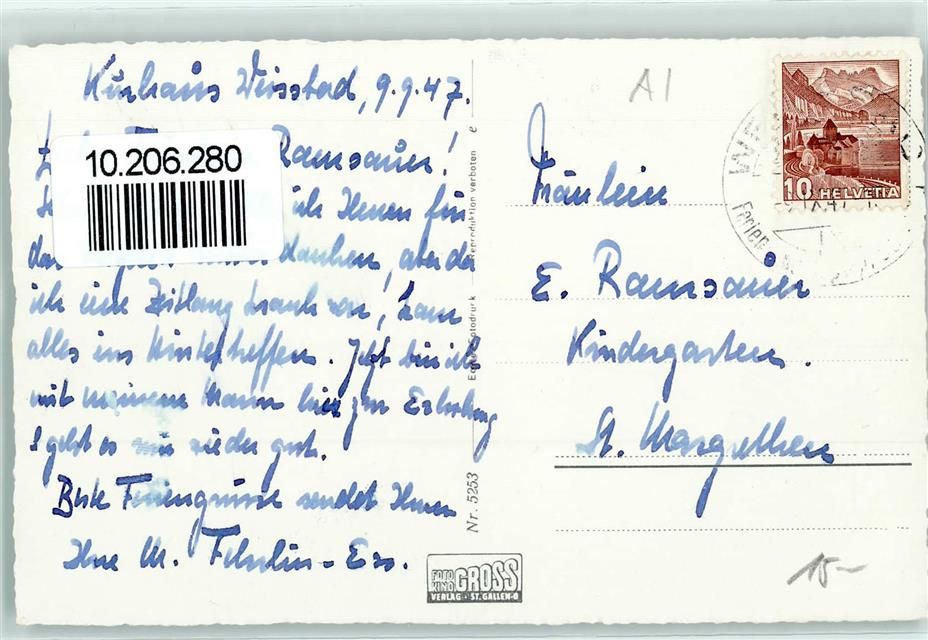 Kurhaus Weissbad, 9.9.47.
Ramsauer!
10.206.280
ich Ihnen für
danken, aber da
ich eine Zeitlang krank war, kam
alles ins Hintertreffen. Jetzt bin ich
mit meinem Mann hier zur Erholung
& geht es mir wieder gut.
Beste Feriengrüsse sendet Ihnen
Ihre M.
A1
Fräulein
E. Ramsauer
Kindergarten.
St. Margrethen
10 HELVETIA
Ferien
Reproduktion verboten
Nr. 5253
FOTO KINO GROSS
VERLAG · ST. GALLEN-O
15-